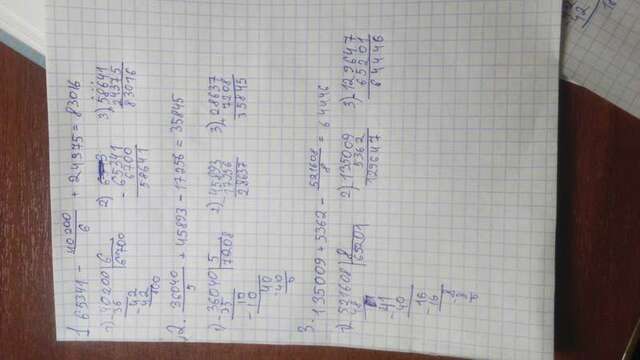 1. 65341 - 40200/6 + 24375 = 83016
1) 40200 | 6
36 | 6700
42
42
00
2) 65341
- 6700
58641
3) 58641
24375
83016
2. 36040/5 + 45893 - 17256 = 35845
1) 36040 | 5
35 | 7208
10
10
40
40
0
2) 45893
17256
28637
3) 28637
7208
35845
3. 135009 + 5362 - 521608/8 = 64446
1) 521608 | 8
48 | 65201
41
40
16
16
8
8
0
2) 135009
5362
129647
3) 129647
65201
64446